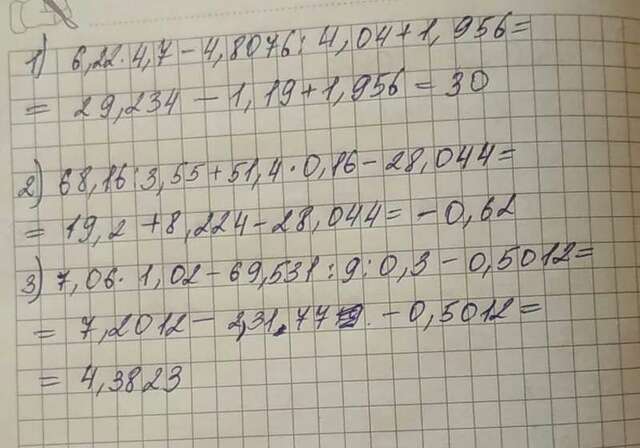 1) 6,22·4,7-4,8076:4,04+1,956=
= 29,234-1,19+1,956=30
2) 68,16:3,55+51,4·0,16-28,044=
= 19,2+8,224-28,044=-0,62
3) 7,06·1,02-69,531:9:0,3-0,5012=
= 7,2012- -0,5012=
= 4,3823